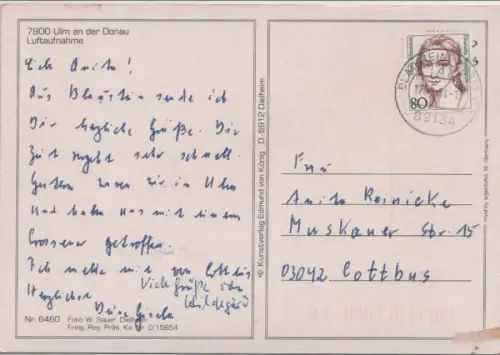 7900 Ulm an der Donau
Luftaufnahme
Lieb Anita!
Aus Blaustein sende ich
Dir herzliche Grüße. Die
Zeit vergeht sehr schnell.
Gestern waren wir in Ulm
und haben uns mit einem
Crossener getroffen.
Ich melde mich von Cottbus
Viele Grüße von
Hildegard
Herzlichst
Deine Gisela
Nr. 6460 Foto W. Sauer, Dielheim
Freig. Reg. Präs. Ka. Nr. 0/15654
© Kunstverlag Edmund von König D-6912 Dielheim
80
89134
Frau
Anita Reinicke
Muskauer Str. 15
03042 Cottbus